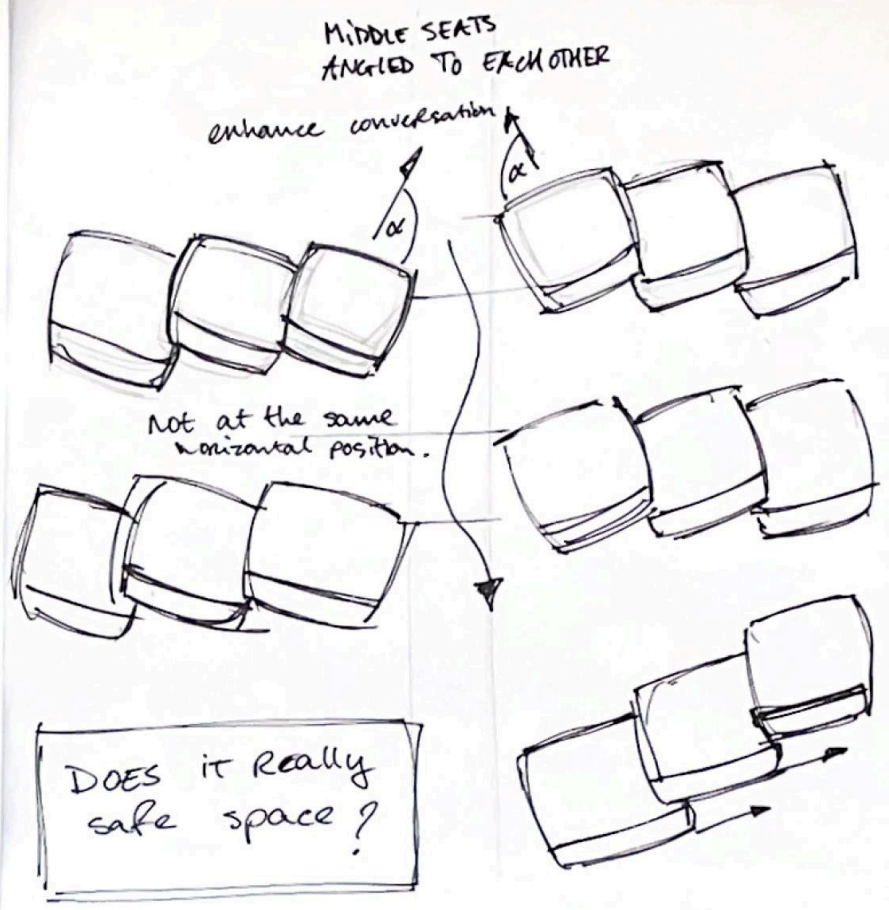 MIDDLE SEATS
ANGLED TO EACH OTHER
enhance conversation
α
α
Not at the same
horizontal position.
DOES it Really
safe space?